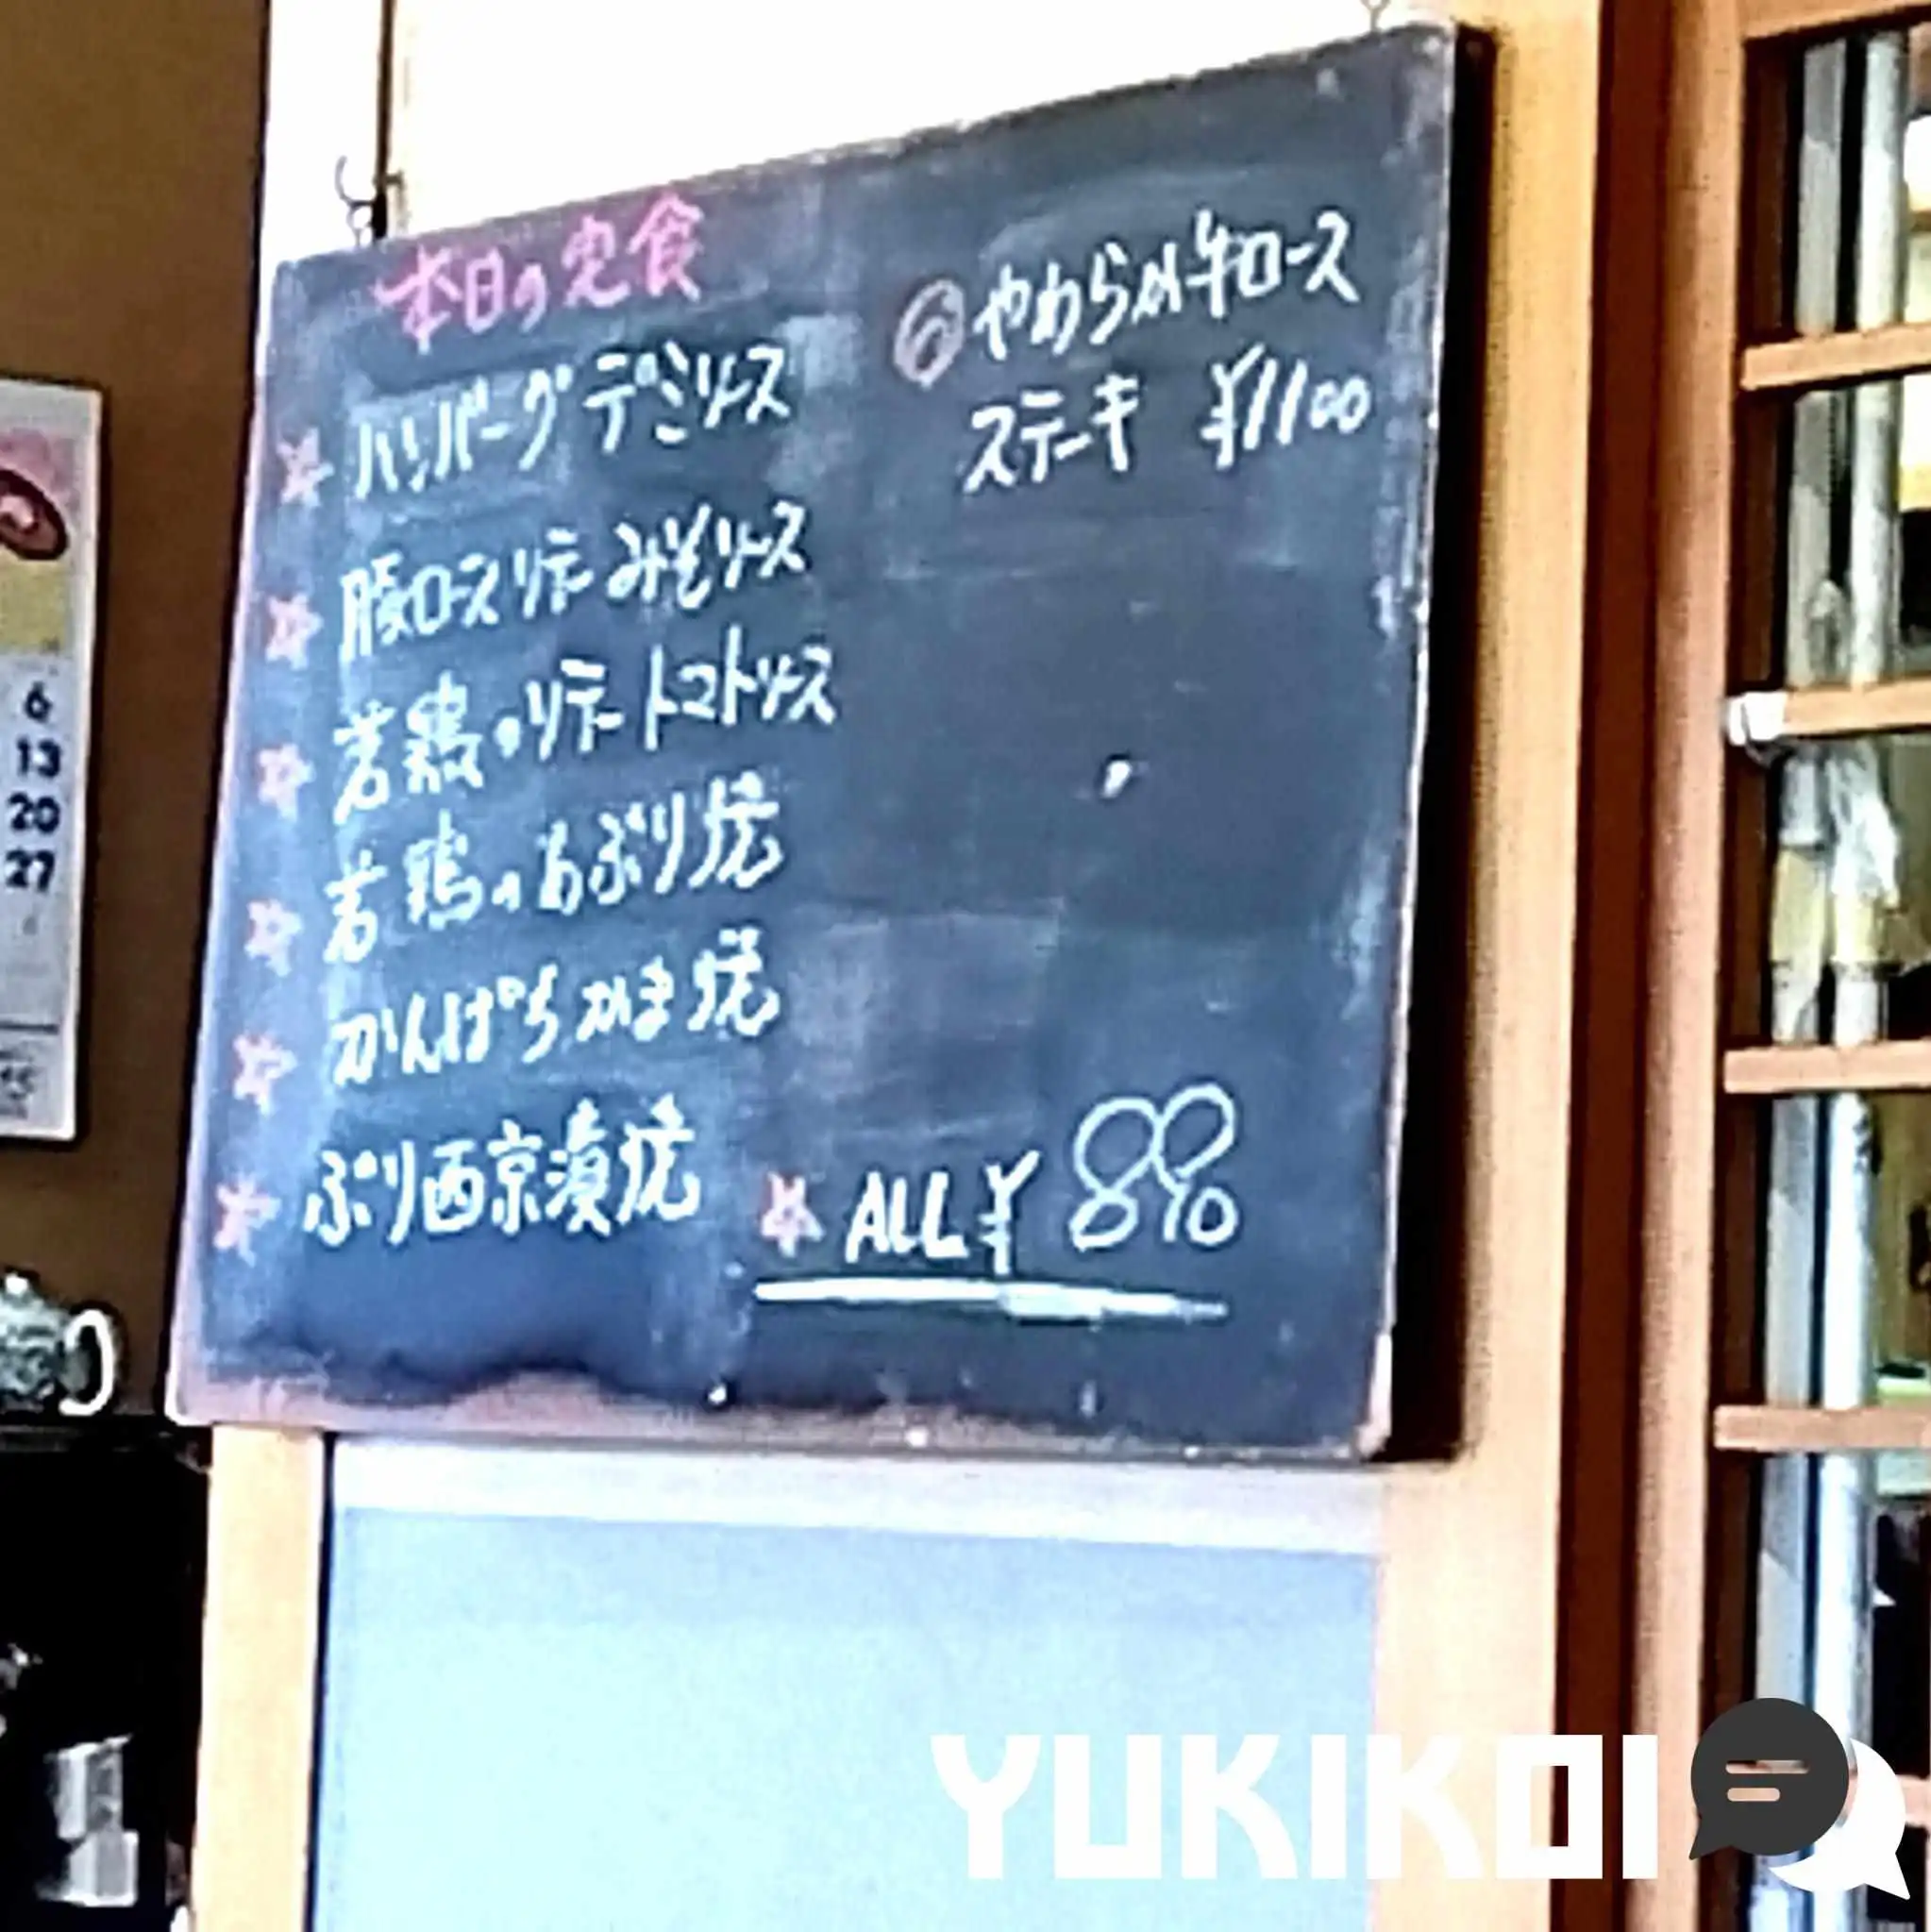 本日の定食
☆ ハンバーグデミソース
☆ 豚ロースソテーみそソース
☆ 若鶏のソテートマトソース
☆ 若鶏のあぶり焼
☆ かんぱちかま焼
☆ ぶり西京漬焼
☆ ALL ¥890
⑥ やわらか牛ロース
ステーキ ¥1100
6
13
20
27
YUKIKOI